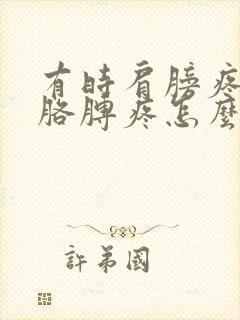 有時肩膀疼
胳膊疼怎麼
許第國